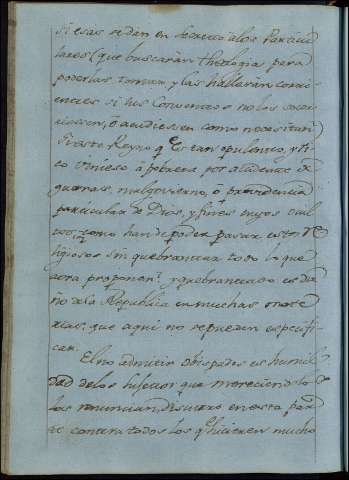 si esas se dan en secreto a los Particu
lares (que buscaran theologia para
poderlas tomar, y las hallaran
si sus Conventos no los soco
rriessen, ò acudiessen como necesitan
Si este Reyno q es tan opulento, y ri
co viniesse à pobreza por accidente
mal govierno, ò providencia
particular de Dios, y fines suyos ocul
tos; como han de poder pasar estos re
ligiosos sin quebrantar todo lo que
aora proponen? y quebrantado es da
ño de la Republica en muchas mate
rias; que aqui no se pueden especifi
car.
El no admitir obispados es humil
dad de los que mereciendolo
los renuncian, discurro en esta par
te contra todos los q hicieren mucho